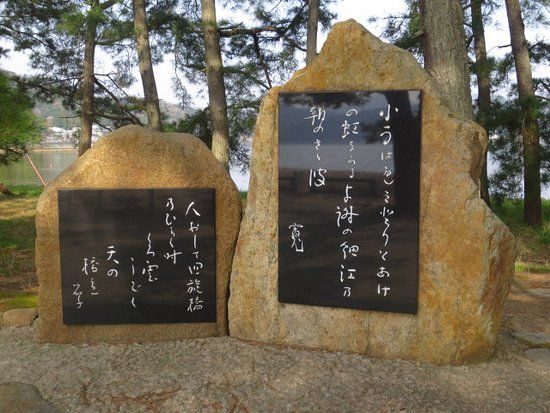 小雨はれみどりとあけ
の虹ながる与謝の細江乃
朝のさゞ波
寛
人おして回旋橋
乃ひらく時
くろ雲
うごく
天の
橋立
晶子